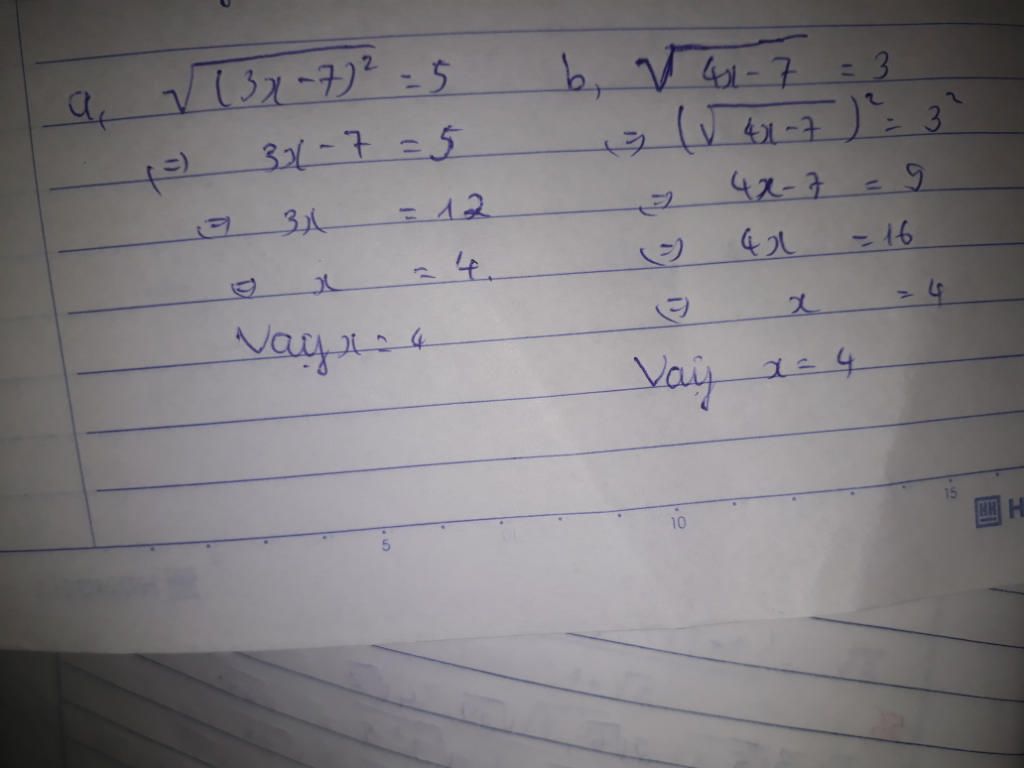 a, √(3x-7)² = 5
⇔ 3x - 7 = 5
⇔ 3x = 12
⇔ x = 4.
Vậy x = 4
b, √4x-7 = 3
⇔ (√4x-7)² = 3²
⇔ 4x-7 = 9
⇔ 4x = 16
⇔ x = 4
Vậy x = 4
5 10 15
H